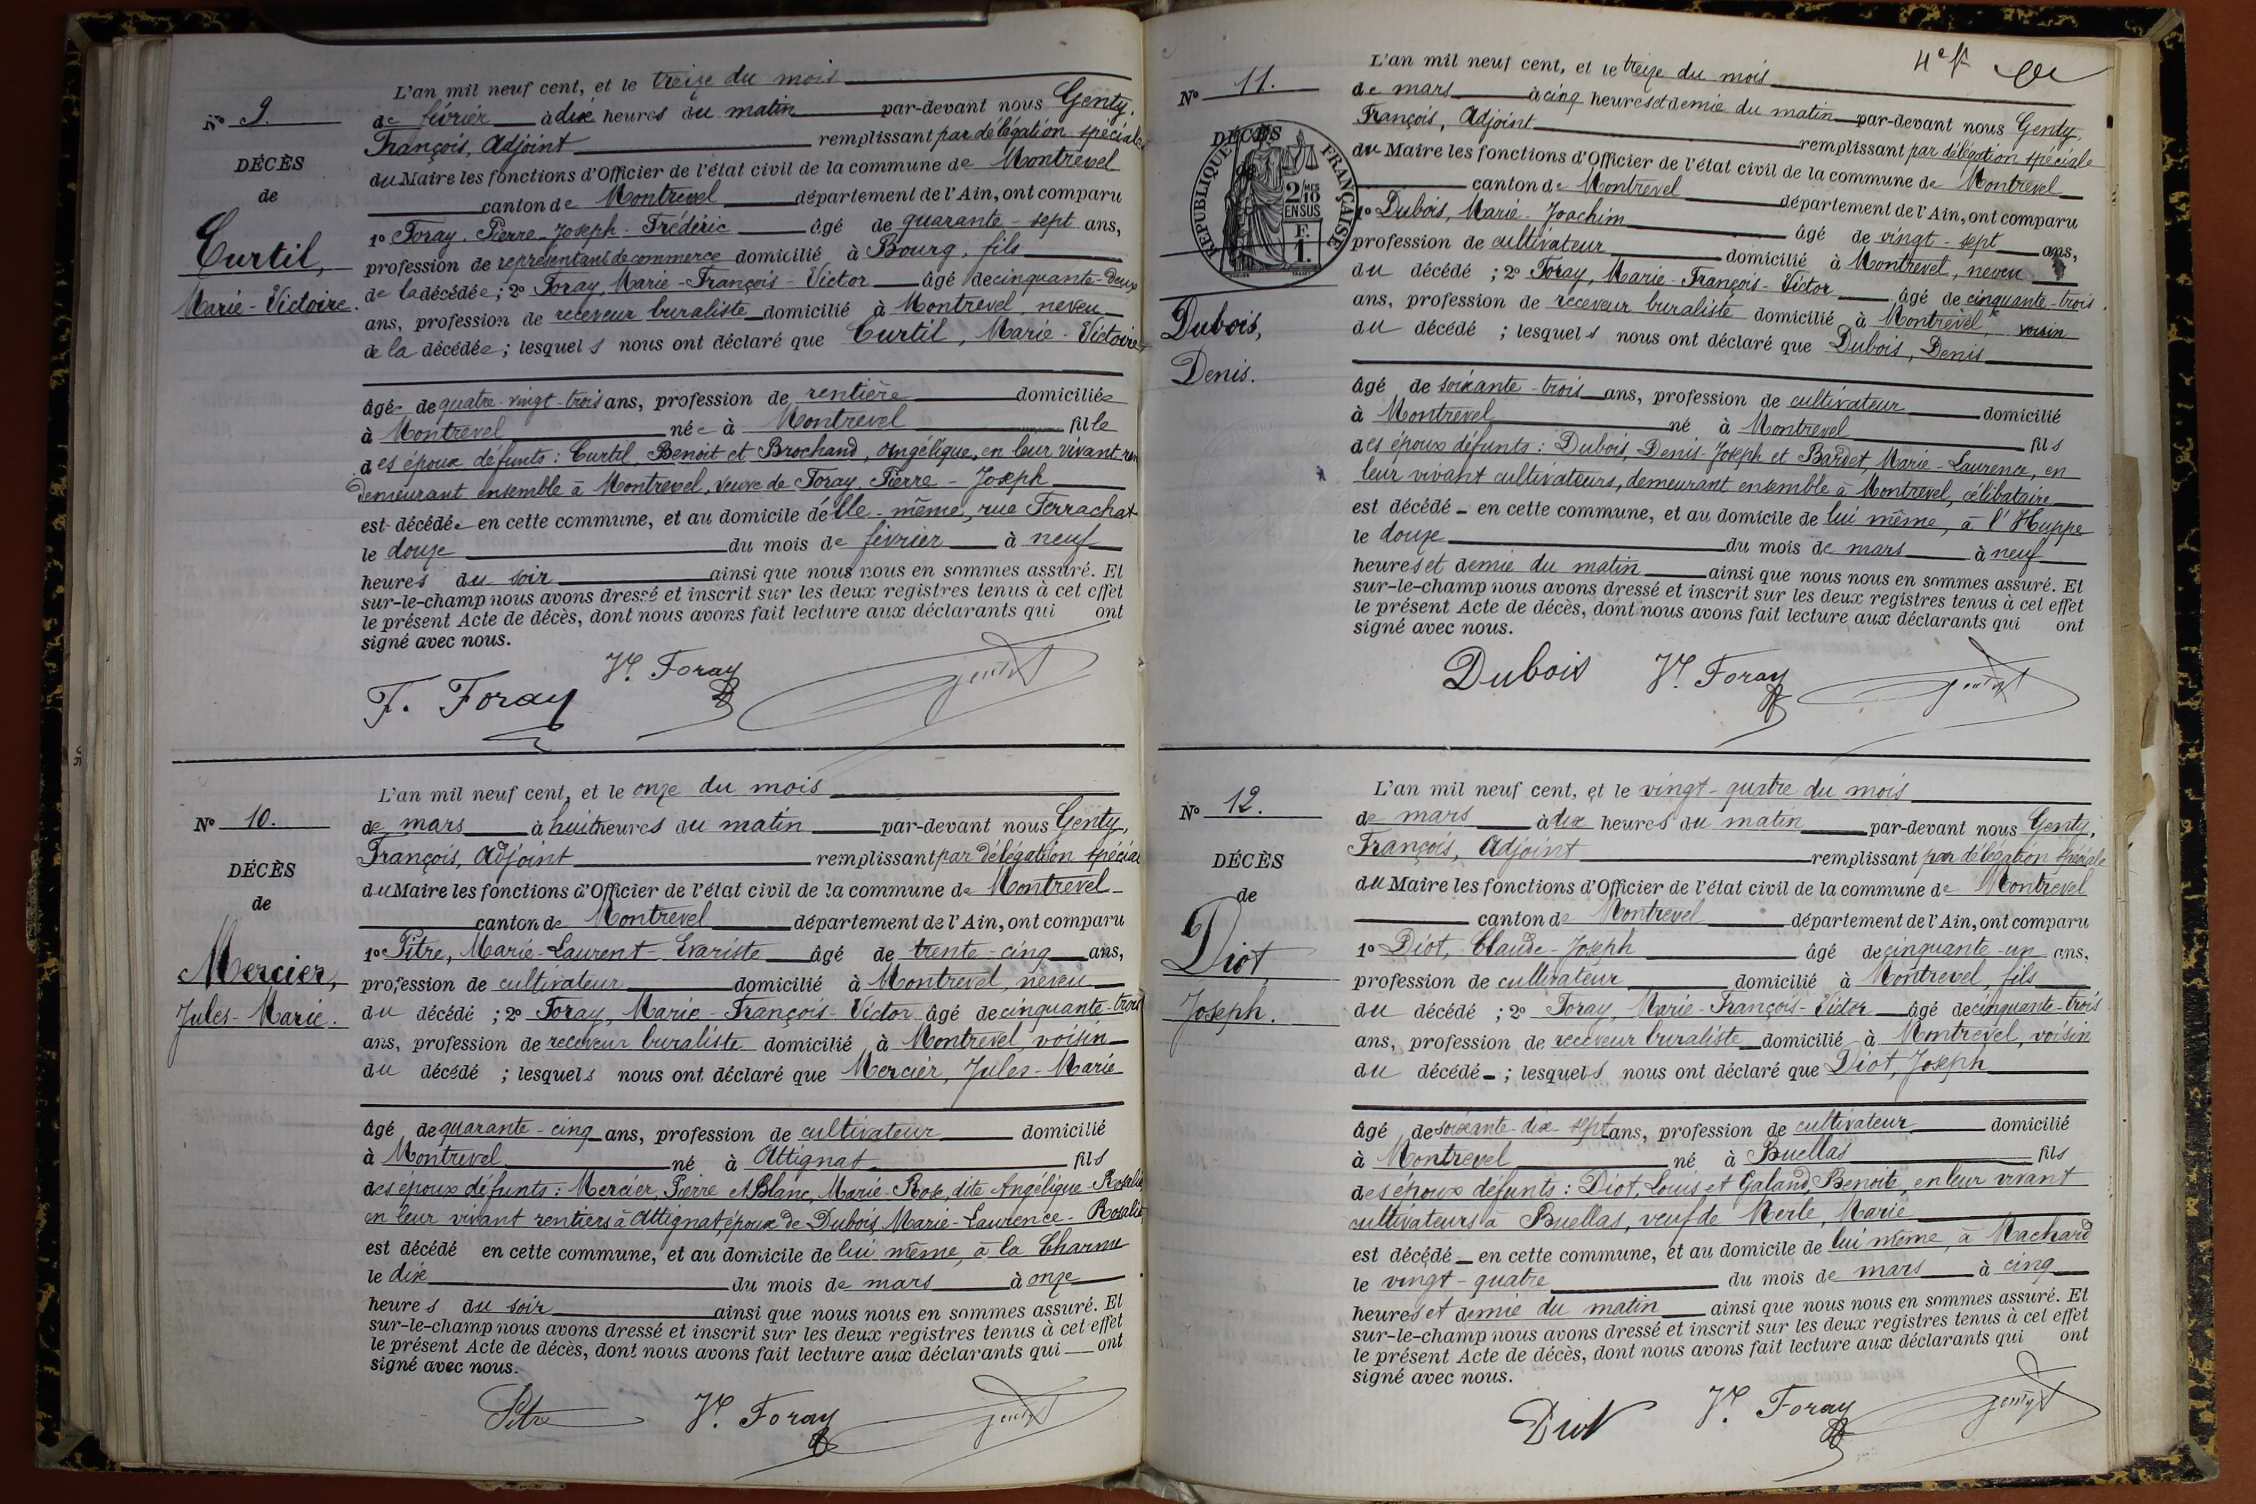 L'an mil neuf cent, et le treize du mois
N° 9.
de février à dix heures du matin par-devant nous Genty,
François, Adjoint remplissant par délégation spéciale
DÉCÈS
du Maire les fonctions d'Officier de l'état civil de la commune de Montrevel
de
canton de Montrevel département de l'Ain, ont comparu
Curtil,
Marie-Victoire.
1° Foray, Pierre-Joseph-Frédéric âgé de quarante-sept ans,
profession de représentant de commerce domicilié à Bourg, fils
de la décédée; 2° Foray, Marie-François-Victor âgé de cinquante-deux
ans, profession de receveur buraliste domicilié à Montrevel, neveu
de la décédée; lesquels nous ont déclaré que Curtil, Marie-Victoire
âgée de quatre-vingt-trois ans, profession de rentière domiciliée
à Montrevel née à Montrevel fille
des époux défunts: Curtil, Benoit et Brochand, Angélique, en leur vivant
demeurant ensemble à Montrevel, veuve de Foray, Pierre-Joseph
est décédée en cette commune, et au domicile d'elle-même, rue Ferrachat
le douze du mois de février à neuf
heures du soir ainsi que nous nous en sommes assuré. Et
sur-le-champ nous avons dressé et inscrit sur les deux registres tenus à cet effet
le présent Acte de décès, dont nous avons fait lecture aux déclarants qui ont
signé avec nous.
F. Foray Vr. Foray Genty
L'an mil neuf cent, et le onze du mois
N° 10.
de mars à huit heures du matin par-devant nous Genty,
François, Adjoint remplissant par délégation spéciale
DÉCÈS
du Maire les fonctions d'Officier de l'état civil de la commune de Montrevel
de
canton de Montrevel département de l'Ain, ont comparu
Mercier,
Jules-Marie.
1° Pitre, Marie-Laurent-Evariste âgé de trente-cinq ans,
profession de cultivateur domicilié à Montrevel, neveu
du décédé; 2° Foray, Marie-François-Victor âgé de cinquante-trois
ans, profession de receveur buraliste domicilié à Montrevel, voisin
du décédé; lesquels nous ont déclaré que Mercier, Jules-Marie
âgé de quarante-cinq ans, profession de cultivateur domicilié
à Montrevel né à Attignat fils
des époux défunts: Mercier, Pierre et Blanc, Marie-Rose, dite Angélique-Rosalie
en leur vivant rentiers à Attignat, époux de Dubois, Marie-Laurence-Rosalie
est décédé en cette commune, et au domicile de lui même, à la Charme
le dix du mois de mars à onze
heures du soir ainsi que nous nous en sommes assuré. Et
sur-le-champ nous avons dressé et inscrit sur les deux registres tenus à cet effet
le présent Acte de décès, dont nous avons fait lecture aux déclarants qui ont
signé avec nous.
Pitre Vr. Foray Genty
4e f
L'an mil neuf cent, et le treize du mois
N° 11.
de mars à cinq heures et demie du matin par-devant nous Genty,
François, Adjoint remplissant par délégation spéciale
DÉCÈS
RÉPUBLIQUE FRANÇAISE
2/10MES
EN SUS
F.
1.
du Maire les fonctions d'Officier de l'état civil de la commune de Montrevel
canton de Montrevel département de l'Ain, ont comparu
Dubois,
Denis.
1° Dubois, Marie-Joachim âgé de vingt-sept ans,
profession de cultivateur domicilié à Montrevel, neveu
du décédé; 2° Foray, Marie-François-Victor âgé de cinquante-trois
ans, profession de receveur buraliste domicilié à Montrevel, voisin
du décédé; lesquels nous ont déclaré que Dubois, Denis
âgé de soixante-trois ans, profession de cultivateur domicilié
à Montrevel né à Montrevel fils
des époux défunts: Dubois, Denis-Joseph et Bardet, Marie-Laurence, en
leur vivant cultivateurs, demeurant ensemble à Montrevel, célibataire
est décédé en cette commune, et au domicile de lui même, à l'Huppe
le douze du mois de mars à neuf
heures et demie du matin ainsi que nous nous en sommes assuré. Et
sur-le-champ nous avons dressé et inscrit sur les deux registres tenus à cet effet
le présent Acte de décès, dont nous avons fait lecture aux déclarants qui ont
signé avec nous.
Dubois Vr. Foray Genty
L'an mil neuf cent, et le vingt-quatre du mois
N° 12.
de mars à dix heures du matin par-devant nous Genty,
François, Adjoint remplissant par délégation spéciale
DÉCÈS
du Maire les fonctions d'Officier de l'état civil de la commune de Montrevel
de
canton de Montrevel département de l'Ain, ont comparu
Diot
Joseph.
1° Diot, Claude-Joseph âgé de cinquante-un ans,
profession de cultivateur domicilié à Montrevel, fils
du décédé; 2° Foray, Marie-François-Victor âgé de cinquante-trois
ans, profession de receveur buraliste domicilié à Montrevel, voisin
du décédé; lesquels nous ont déclaré que Diot, Joseph
âgé de soixante-dix-sept ans, profession de cultivateur domicilié
à Montrevel né à Buellas fils
des époux défunts: Diot, Louis et Galand, Benoite, en leur vivant
cultivateurs à Buellas, veuf de Merle, Marie
est décédé en cette commune, et au domicile de lui même, à Machard
le vingt-quatre du mois de mars à cinq
heures et demie du matin ainsi que nous nous en sommes assuré. Et
sur-le-champ nous avons dressé et inscrit sur les deux registres tenus à cet effet
le présent Acte de décès, dont nous avons fait lecture aux déclarants qui ont
signé avec nous.
Diot Vr. Foray Genty